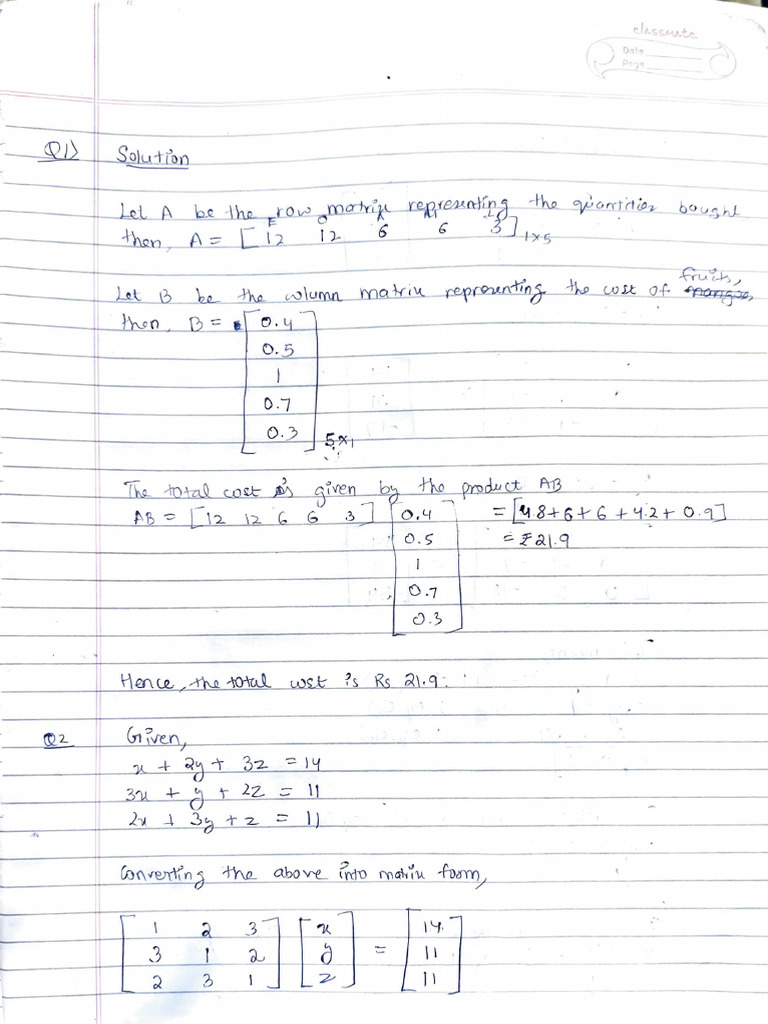 classmate
Date
Page
Q1) Solution
Let A be the row matrix representing the quantities bought
E O A M L
then, A = [12 12 6 6 3] 1×5
Let B be the column matrix representing the cost of fruits,
then, B = [0.4
0.5
1
0.7
0.3] 5×1
The total cost is given by the product AB
AB = [12 12 6 6 3] [0.4 = [4.8+6+6+4.2+0.9]
0.5 = ₹21.9
1
0.7
0.3]
Hence, the total cost is Rs 21.9.
Q2 Given,
x + 2y + 3z = 14
3x + y + 2z = 11
2x + 3y + z = 11
Converting the above into matrix form,
[1 2 3] [x] [14]
[3 1 2] [y] = [11]
[2 3 1] [z] [11]